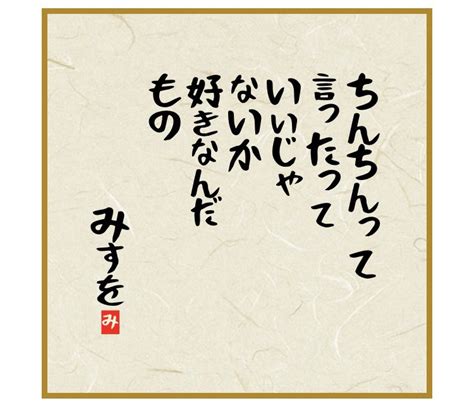 ちんちんって
言ったって
いいじゃ
ないか
好きなんだ
もの
みすを
み